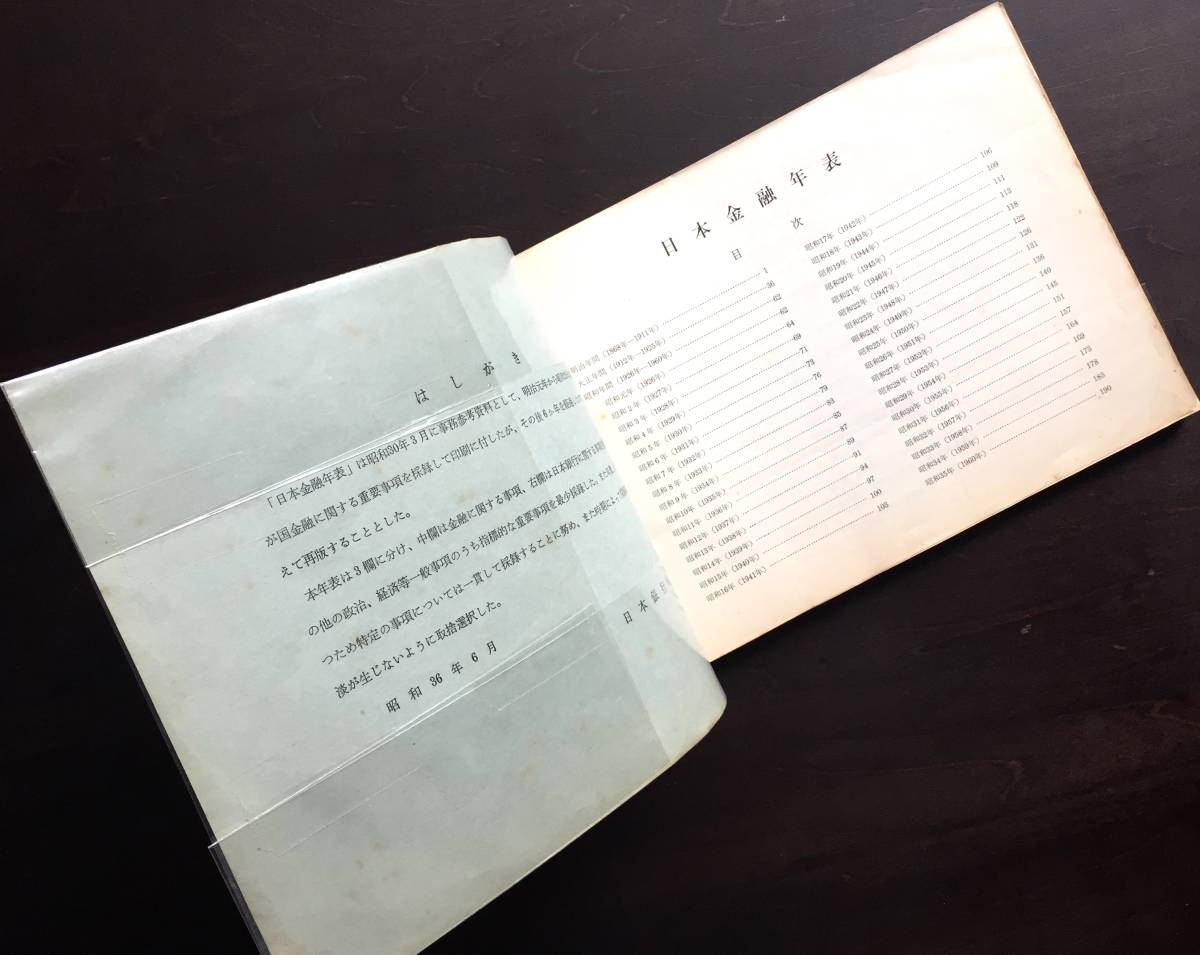 はしがき
「日本金融年表」は昭和30年3月に事務参考資料として、明治元年から
が国金融に関する重要事項を採録して印刷に付したが、その後
えて再版することとした。
本年表は3欄に分け、中欄は金融に関する事項、右欄は日本銀行に関する
の他の政治、経済等一般事項のうち指標的な重要事項を最少採録した。
つため特定の事項については一貫して採録することに努め、また時期によって
淡が生じないように取捨選択した。
昭和36年6月
日本銀行
日本金融年表
目次
明治年間（1868年—1911年）……1
大正年間（1912年—1925年）……36
昭和年間（1926年—1960年）……62
昭和元年（1926年）……62
昭和2年（1927年）……64
昭和3年（1928年）……69
昭和4年（1929年）……71
昭和5年（1930年）……73
昭和6年（1931年）……76
昭和7年（1932年）……79
昭和8年（1933年）……83
昭和9年（1934年）……85
昭和10年（1935年）……87
昭和11年（1936年）……89
昭和12年（1937年）……91
昭和13年（1938年）……94
昭和14年（1939年）……97
昭和15年（1940年）……100
昭和16年（1941年）……103
昭和17年（1942年）……106
昭和18年（1943年）……109
昭和19年（1944年）……111
昭和20年（1945年）……113
昭和21年（1946年）……118
昭和22年（1947年）……122
昭和23年（1948年）……126
昭和24年（1949年）……131
昭和25年（1950年）……136
昭和26年（1951年）……140
昭和27年（1952年）……145
昭和28年（1953年）……151
昭和29年（1954年）……157
昭和30年（1955年）……164
昭和31年（1956年）……169
昭和32年（1957年）……173
昭和33年（1958年）……178
昭和34年（1959年）……183
昭和35年（1960年）……190